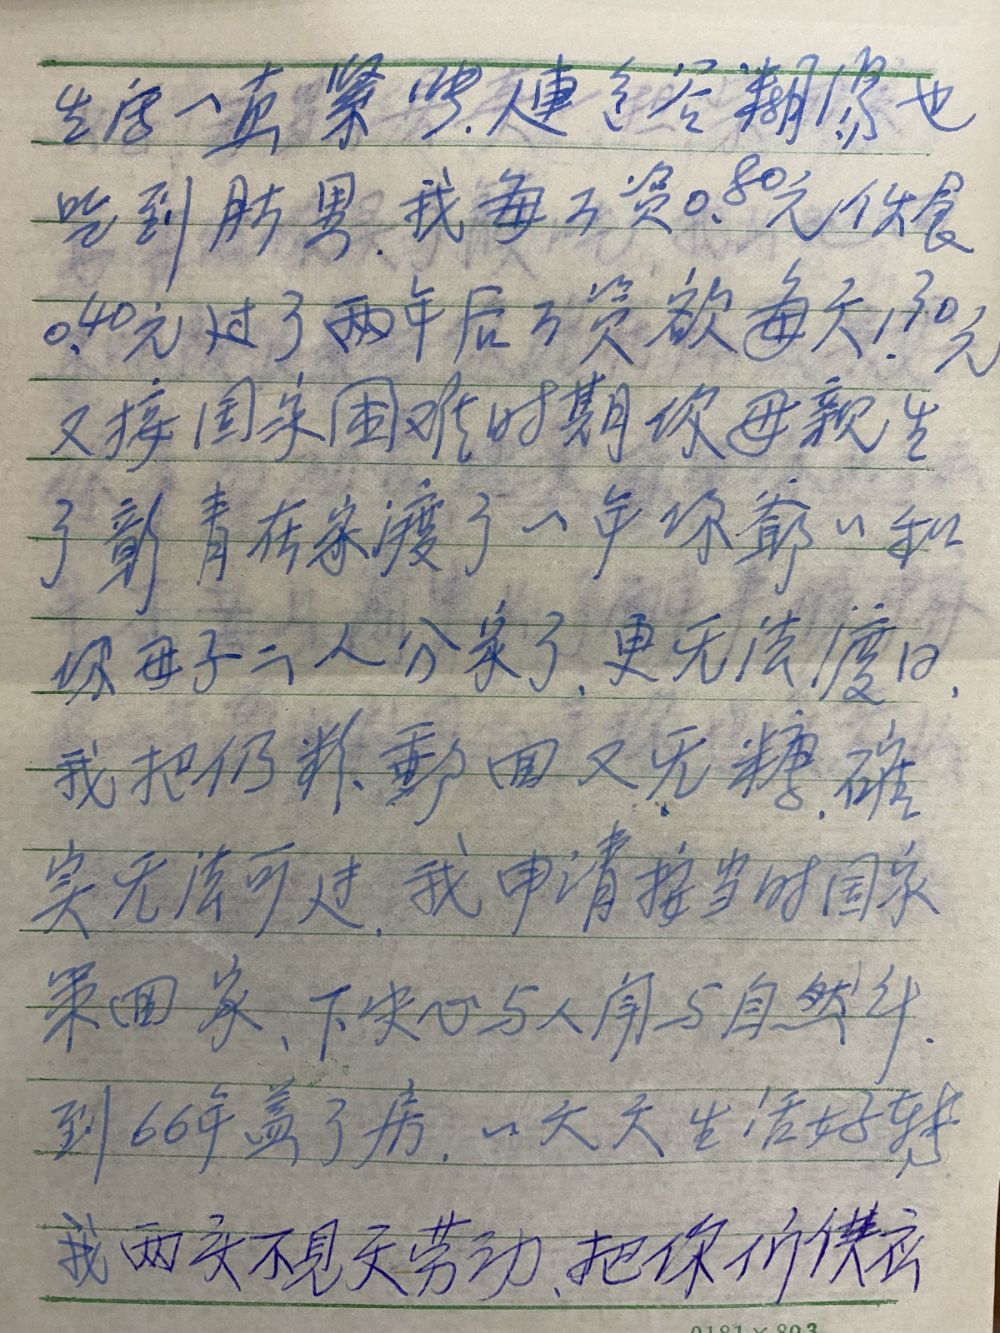 生活一直紧
吃到 我每 工资0.80元伙食
0.40元过了两年后工资 每天1.30元
又接国家困难时期你母亲生
了彰青在家渡了一年你爺〃和
你母子二人分家了、更无法度日、
我把 回又无糖、確
实无法可过、我申请按当时国家
策回家、下决心与人 与自然斗.
到66年盖了房、一天天生活好转
我两 不見天劳动、把你们供
0181×803